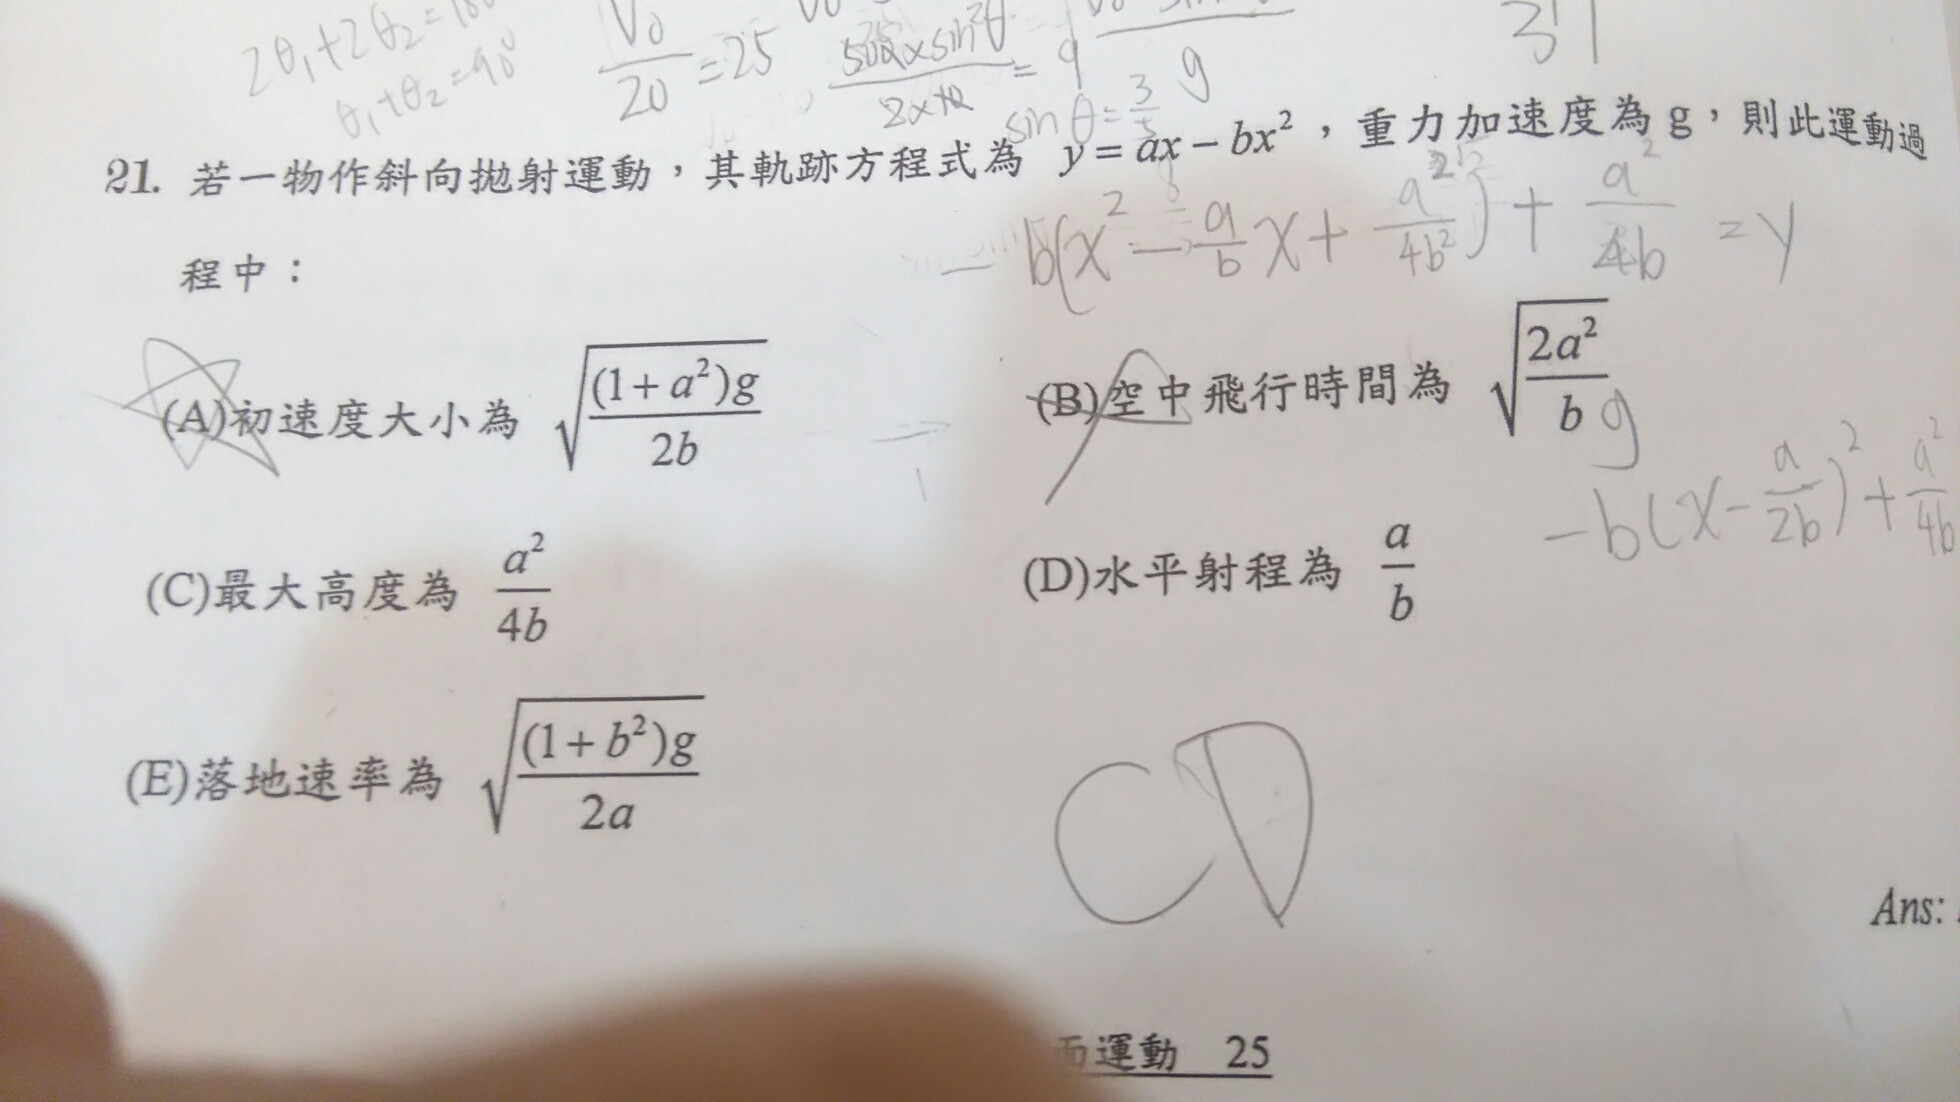 2θ₁+2θ₂=180°
θ₁+θ₂=90°
V₀/20=25
sin θ=3/5
21. 若一物作斜向拋射運動，其軌跡方程式為 y=ax−bx²，重力加速度為 g，則此運動過
−b(x²−a/b x+a²/4b²)+a²/4b=y
程中：
(A)初速度大小為 √((1+a²)g/2b) (B)空中飛行時間為 √(2a²/b g)
−b(x−a/2b)²+a²/4b
(C)最大高度為 a²/4b (D)水平射程為 a/b
(E)落地速率為 √((1+b²)g/2a)
CD
Ans:
面運動 25